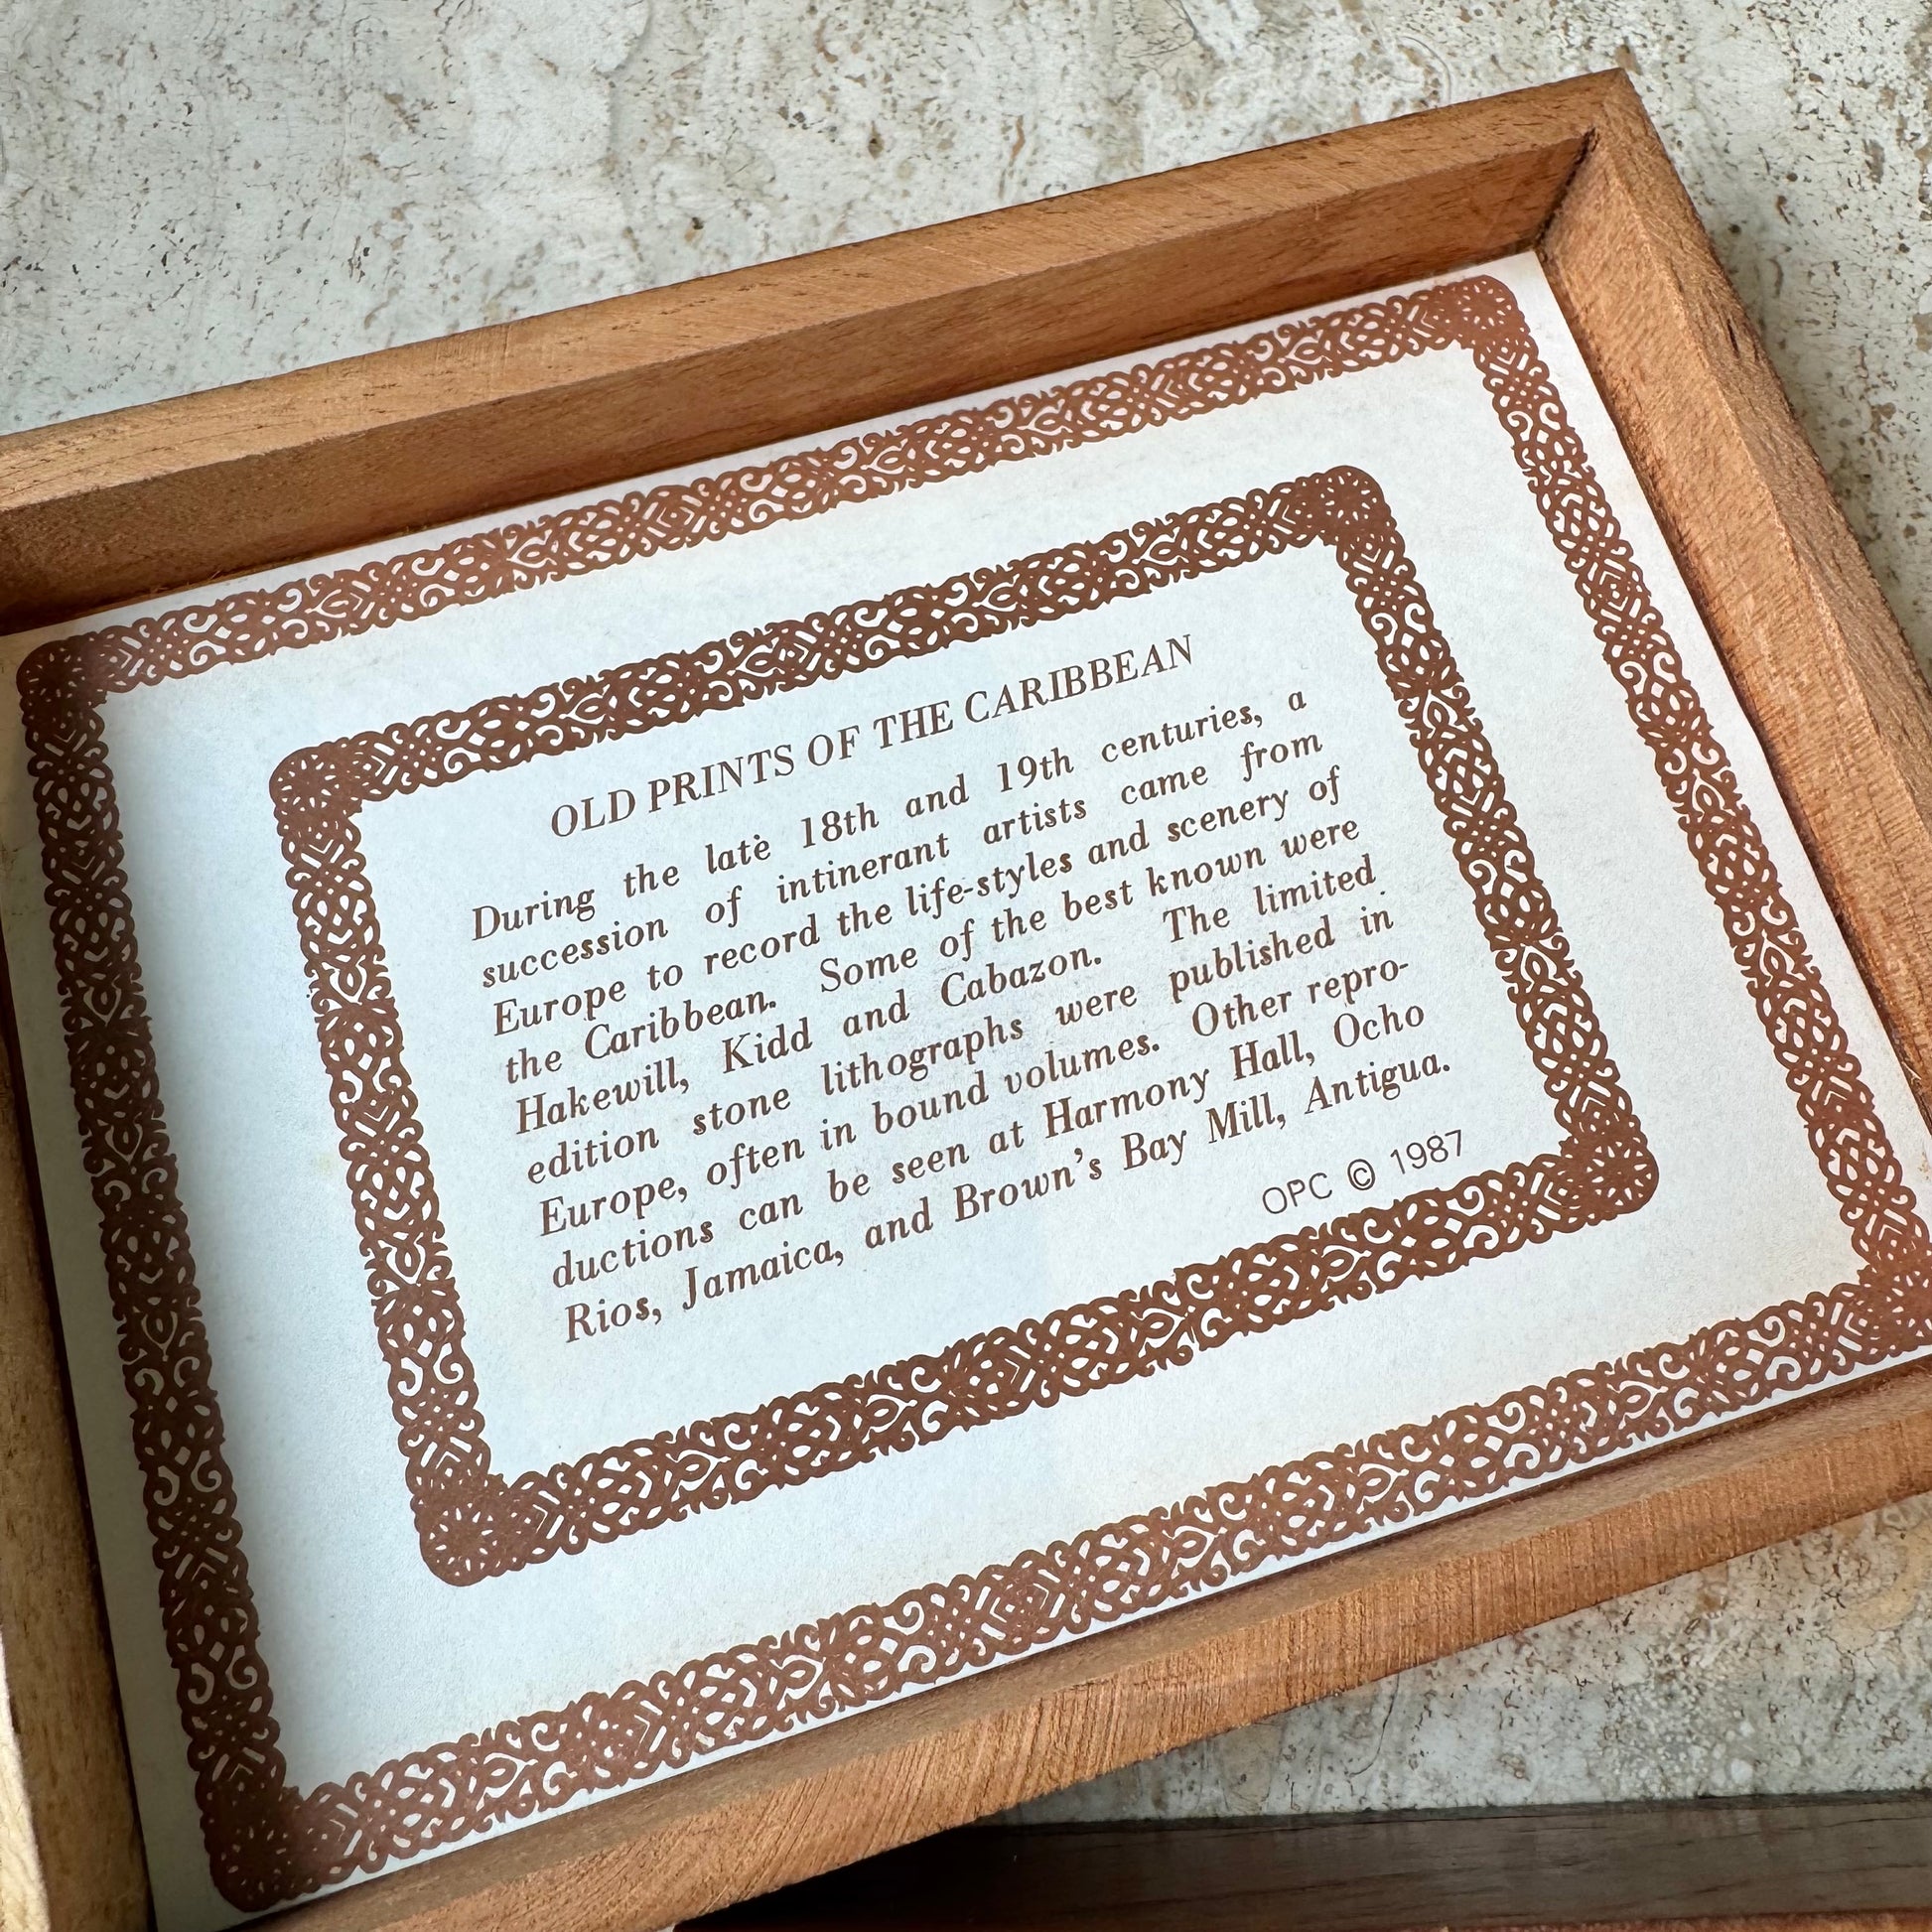 OLD PRINTS OF THE CARIBBEAN
During the late 18th and 19th centuries, a
succession of intinerant artists came from
Europe to record the life-styles and scenery of
the Caribbean. Some of the best known were
Hakewill, Kidd and Cabazon. The limited
edition stone lithographs were published in
Europe, often in bound volumes. Other repro-
ductions can be seen at Harmony Hall, Ocho
Rios, Jamaica, and Brown's Bay Mill, Antigua.
OPC © 1987